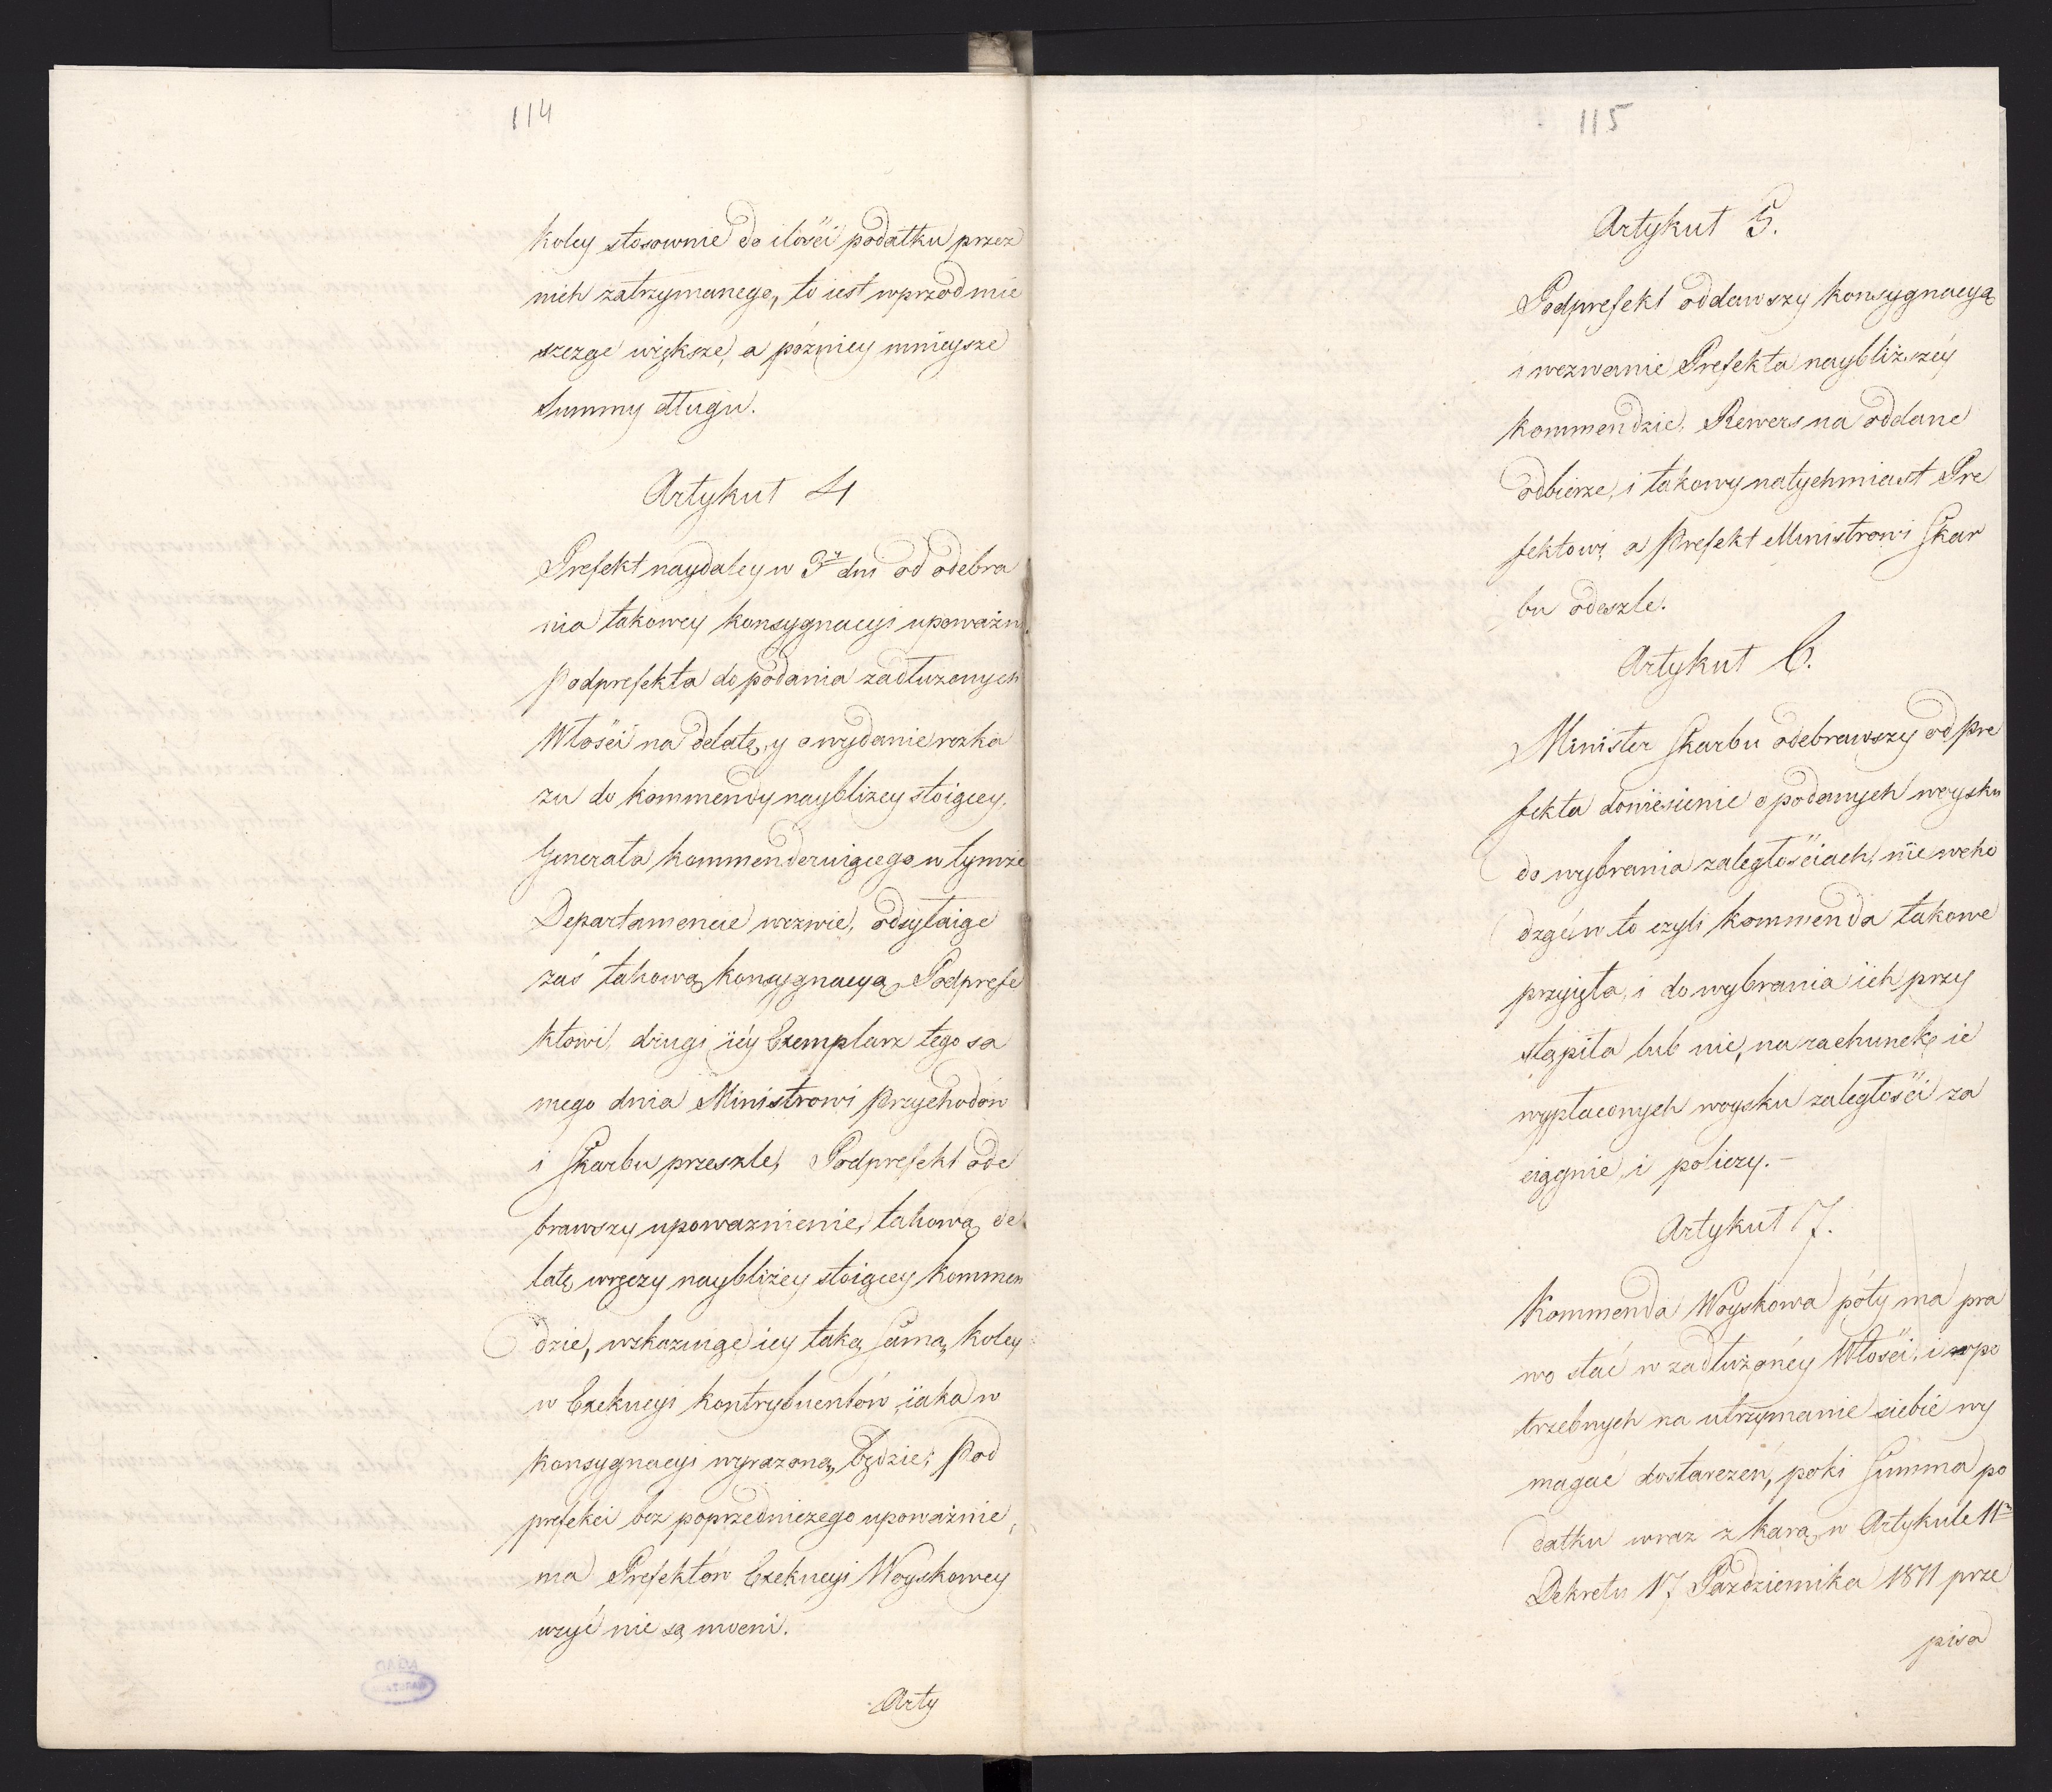 114
koley stosownie do ilości podatku przez
nich zatrzymanego, to iest wprzód mie
szcząc większe, a późniey mnieysze
Summy długu.
Artykuł 4
Prefekt naydaley w 3ch dni od odebra
nia takowey konsygnacyi upoważni
Podprefekta do podania zadłużonych
Włości na delatę, y o wydanie rozka
zu do kommendy naybliżey stoiącey,
Generała kommenderuiącego w tymże
Departamencie wezwie, odsyłaiąc
zaś takową konsygnacyą Podprefe
ktowi, drugi iéy Exemplarz tego sa
mego dnia Ministrowi Przychodów
i Skarbu przeszle, Podprefekt ode
brawszy upoważnienie, takową de
latę wręczy naybliżey stoiącey kommen
dzie, wskazuiąc iey taką samą koley
w Exekucyi kontrybuentów, iaka w
konsygnacyi wyrazoną będzie; Pod
prefekci bez poprzedniczego upoważnie,
nia Prefektów Exekucyi Woyskowey
użyć nie są mocni.
Arty
115
Artykuł 5.
Podprefekt oddawszy konsygnacyą
i wezwanie Prefekta naybliższéy
kommendzie, Rewers na oddane
odbierze, i takowy natychmiast Pre
fektowi, a Prefekt Ministrowi Skar
bu odeszle.
Artykuł 6.
Minister Skarbu odebrawszy od Pre
fekta doniesienie o podanych woysku
do wybrania zaległościach, nie wcho
dząc w to czyli kommenda takowe
przyięła, i do wybrania ich przy
stąpiła lub nie, na rachunek ie
wypłaconych woysku zaległości za
ciągnie, i policzy. –
Artykuł 7.
Kommenda Woyskowa póty ma pra
wo stać w zadłużonéy Włości, i wpo
trzebnych na utrzymanie siebie wy
magać dostarczeń, poki Summa po
datku wraz z karą w Artykule 11m
Dekretu 17 Października 1811 prze
pisa